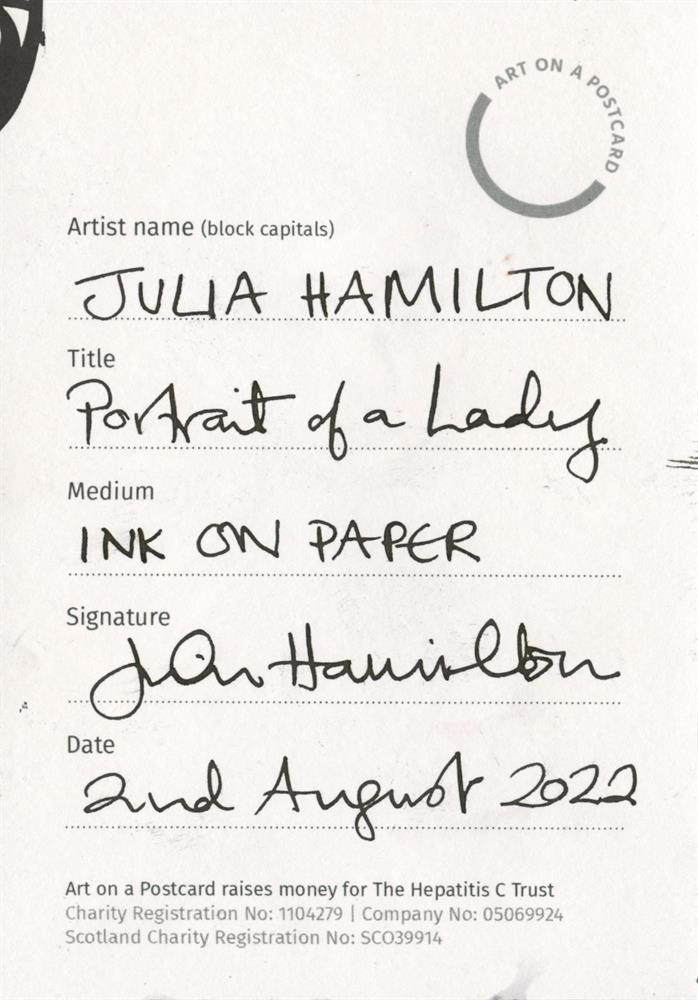 ART ON A POSTCARD
Artist name (block capitals)
JULIA HAMILTON
Title
Portrait of a Lady
Medium
INK ON PAPER
Signature
Julia Hamilton
Date
2nd August 2022
Art on a Postcard raises money for The Hepatitis C Trust
Charity Registration No: 1104279 | Company No: 05069924
Scotland Charity Registration No: SCO39914